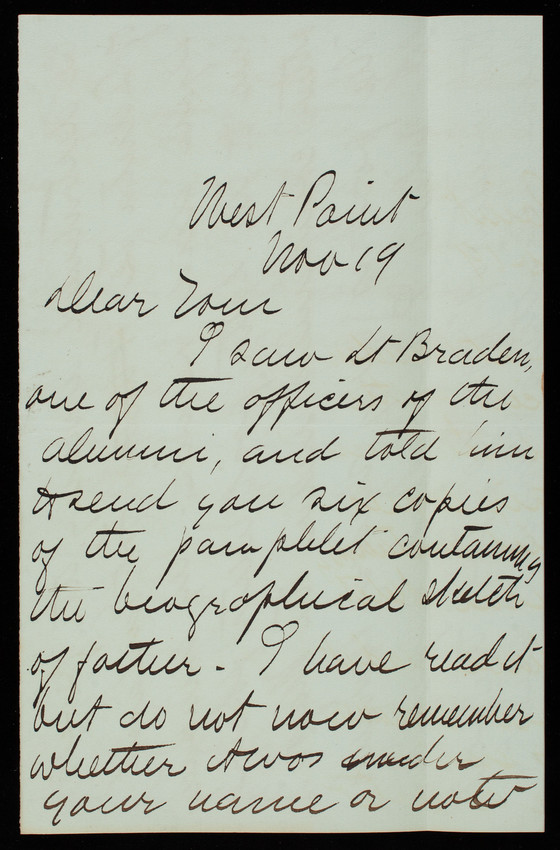 West Point
Nov 19
Dear Tom
I saw Lt Braden,
one of the officers of the
alumni, and told him
to send you six copies
of the pamphlet containing
the biographical sketch
of father - I have read it
but do not now remember
whether it was under
your name or not